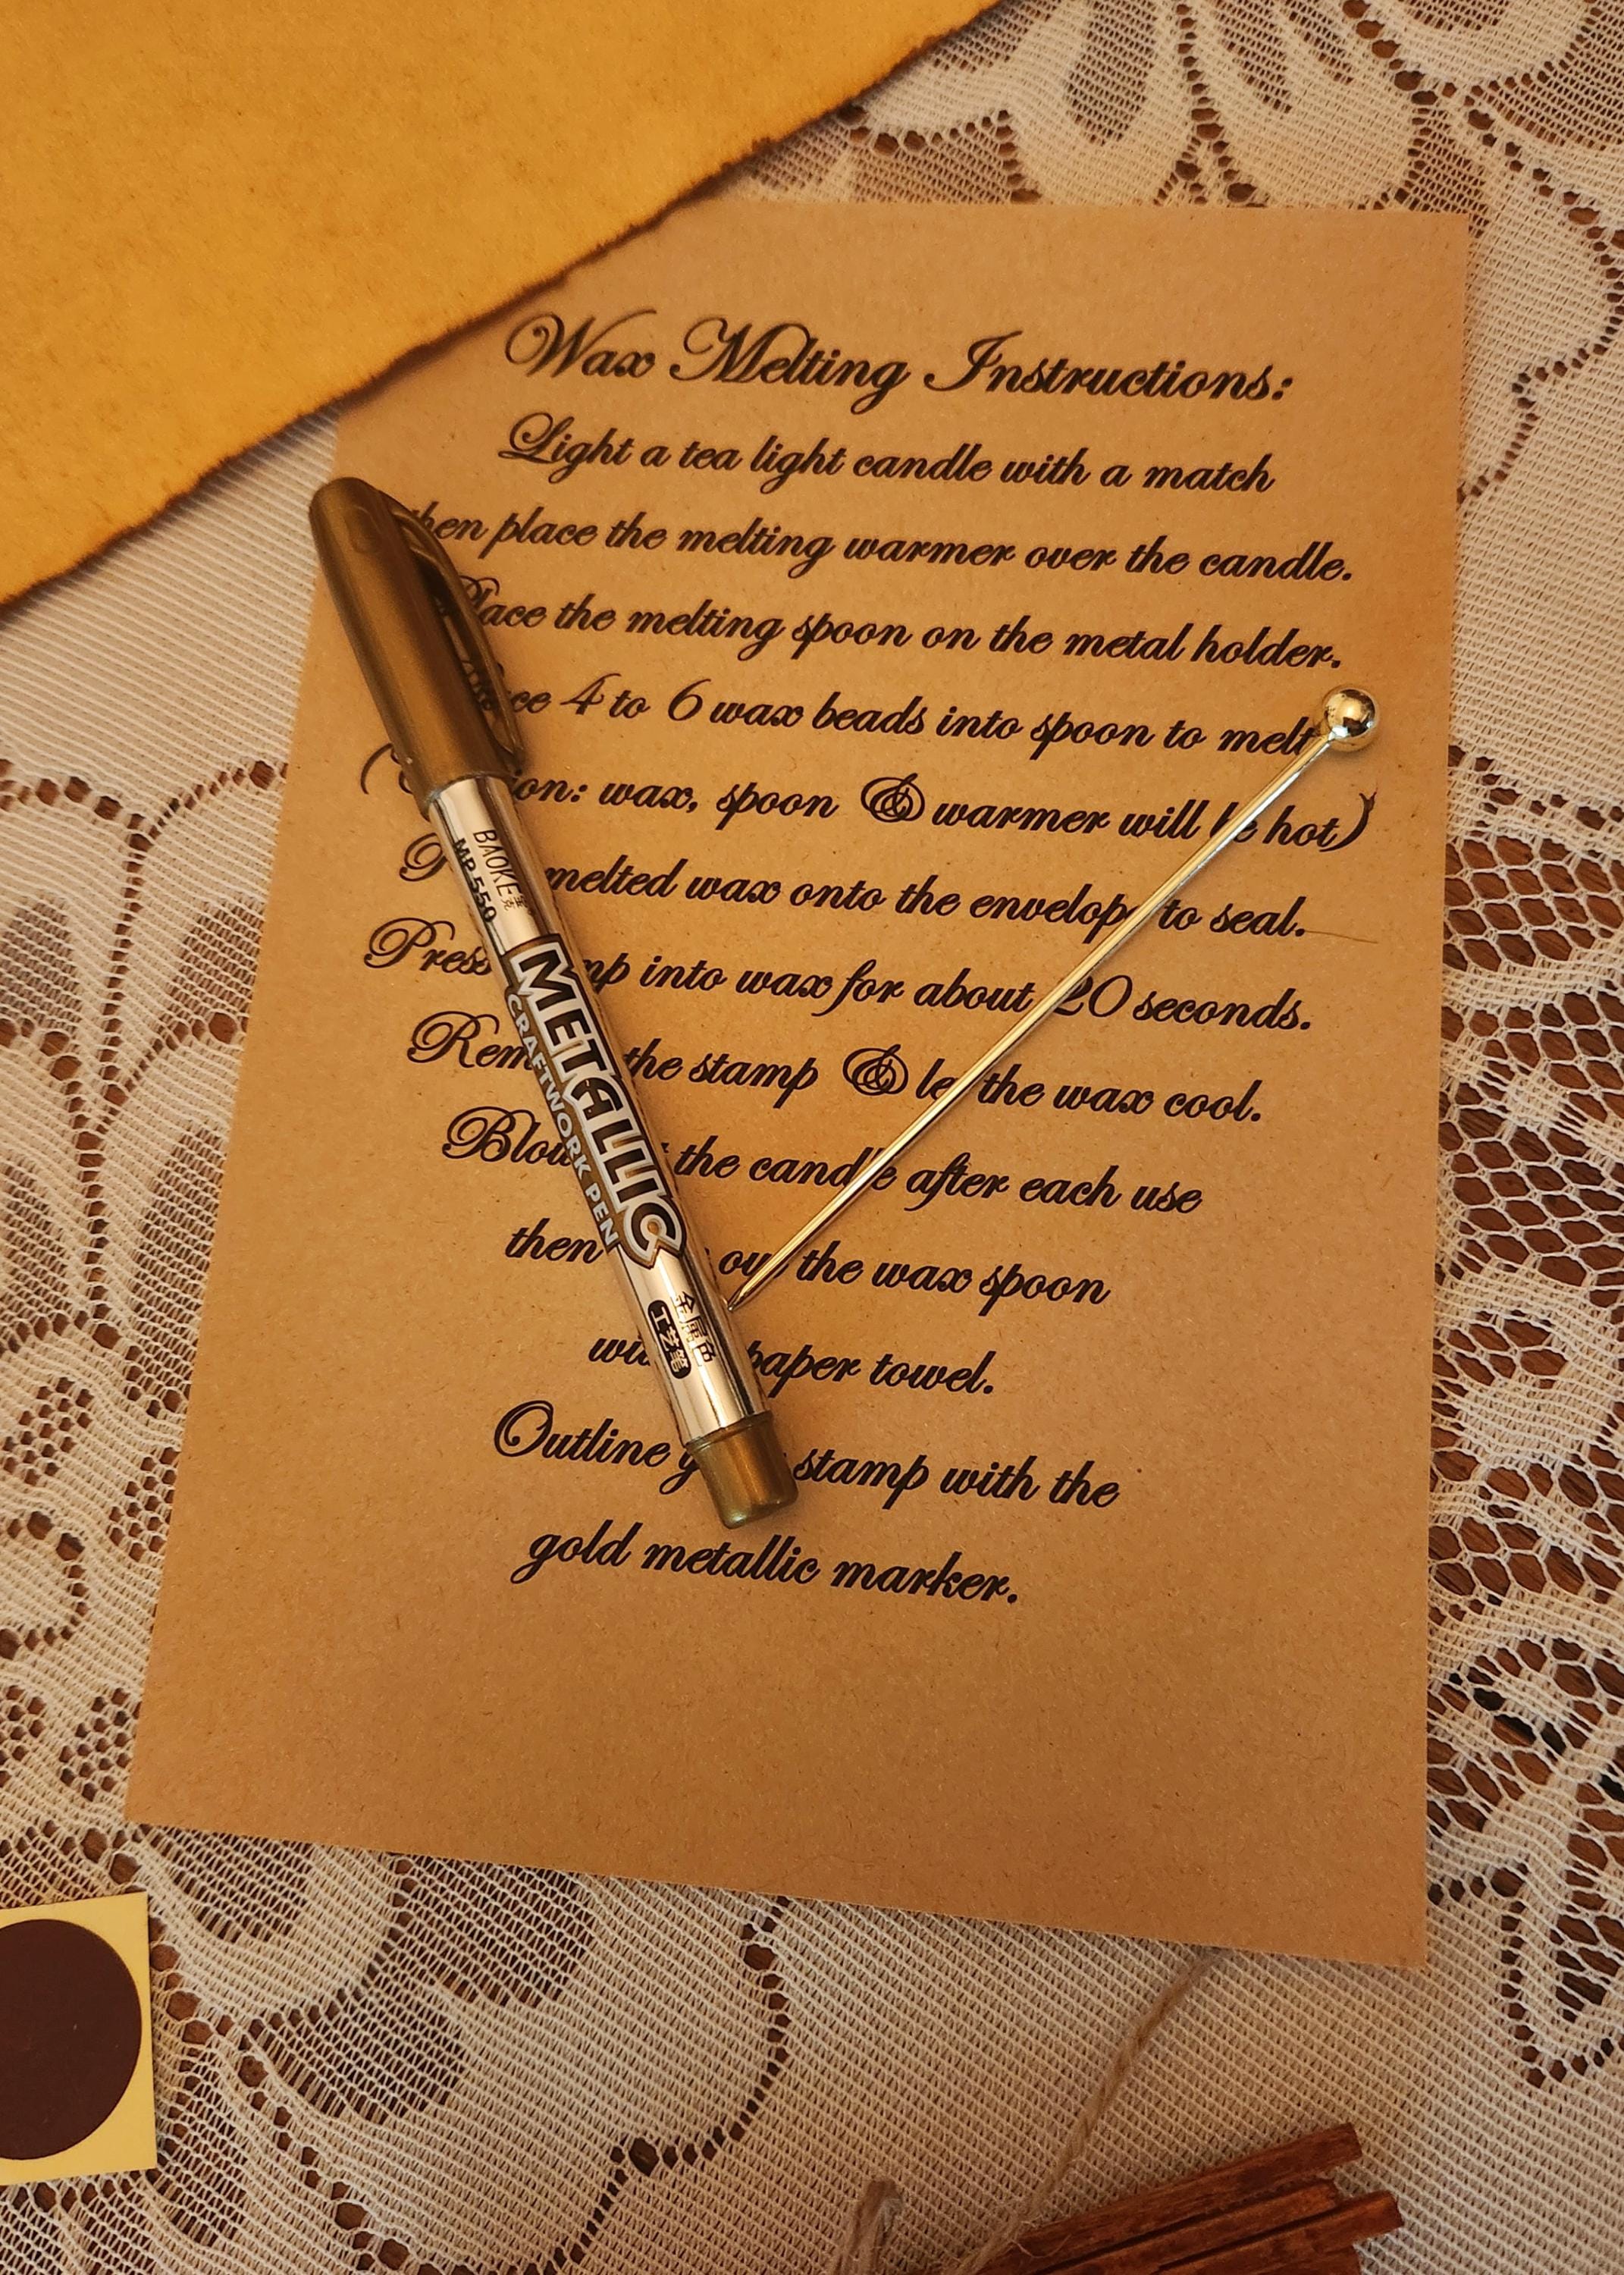 Wax Melting Instructions:
Light a tea light candle with a match
then place the melting warmer over the candle.
Place the melting spoon on the metal holder.
4 to 6 wax beads into spoon to melt
wax, spoon & warmer will be hot)
melted wax onto the envelope to seal.
Press into wax for about 20 seconds.
the stamp & let the wax cool.
the candle after each use
then the wax spoon
paper towel.
Outline stamp with the
gold metallic marker.
BAOKE宝克
MP550
METALLIC
CRAFTWORK PEN
金属色
工艺笔